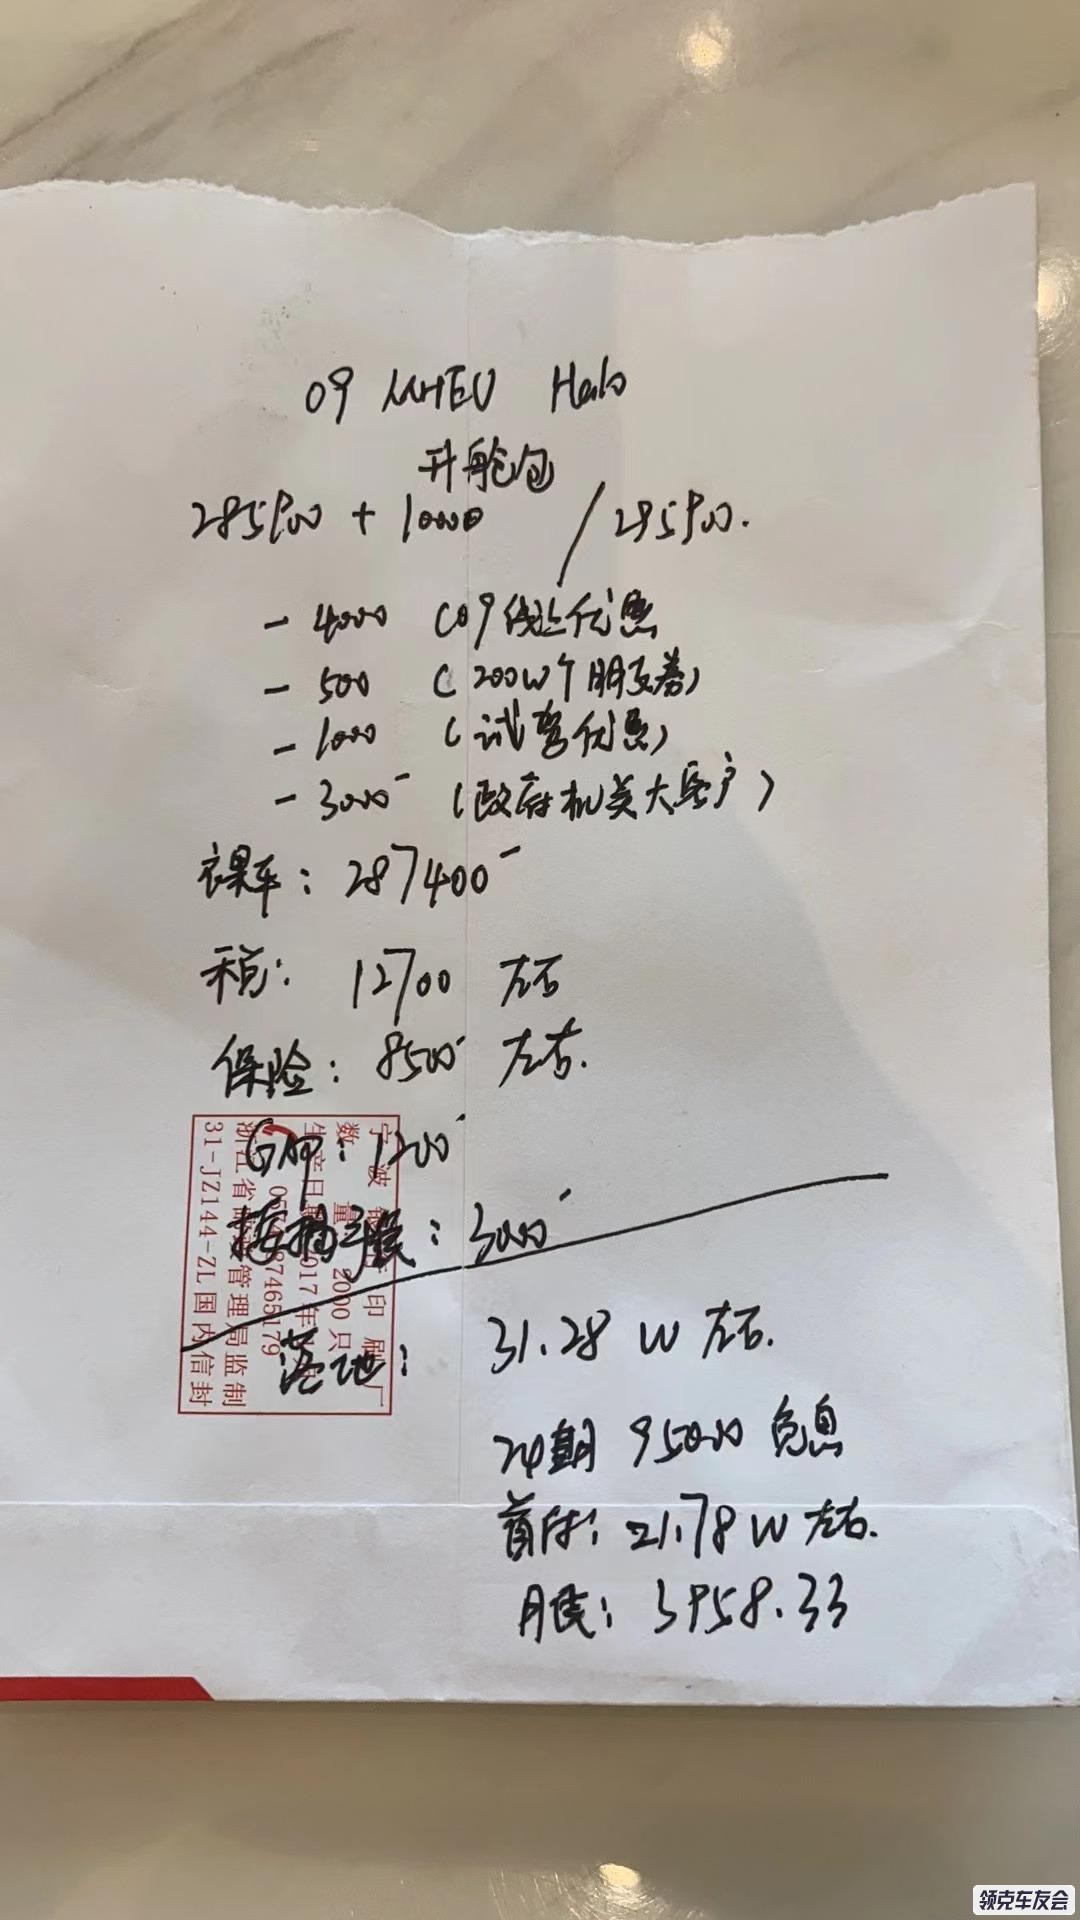 09 MHEV Halo
升舱包
285900 + 10000 / 295900.
- 4000 (09线上优惠
- 500 (200W个朋友券)
- 1000 (试驾优惠)
- 3000 (政府机关大客户)
裸车: 287400
税: 12700 左右
保险: 8500 左右.
GAP: 1200
按揭手续: 3000
落地: 31.28 W 左右.
24期 95000 免息
首付: 21.78 W 左右.
月供: 3958.33
宁波 印刷厂
数量 2000只
生产日期 2017年
87465179
浙江省邮政管理局监制
31-JZ144-ZL国内信封
领克车友会